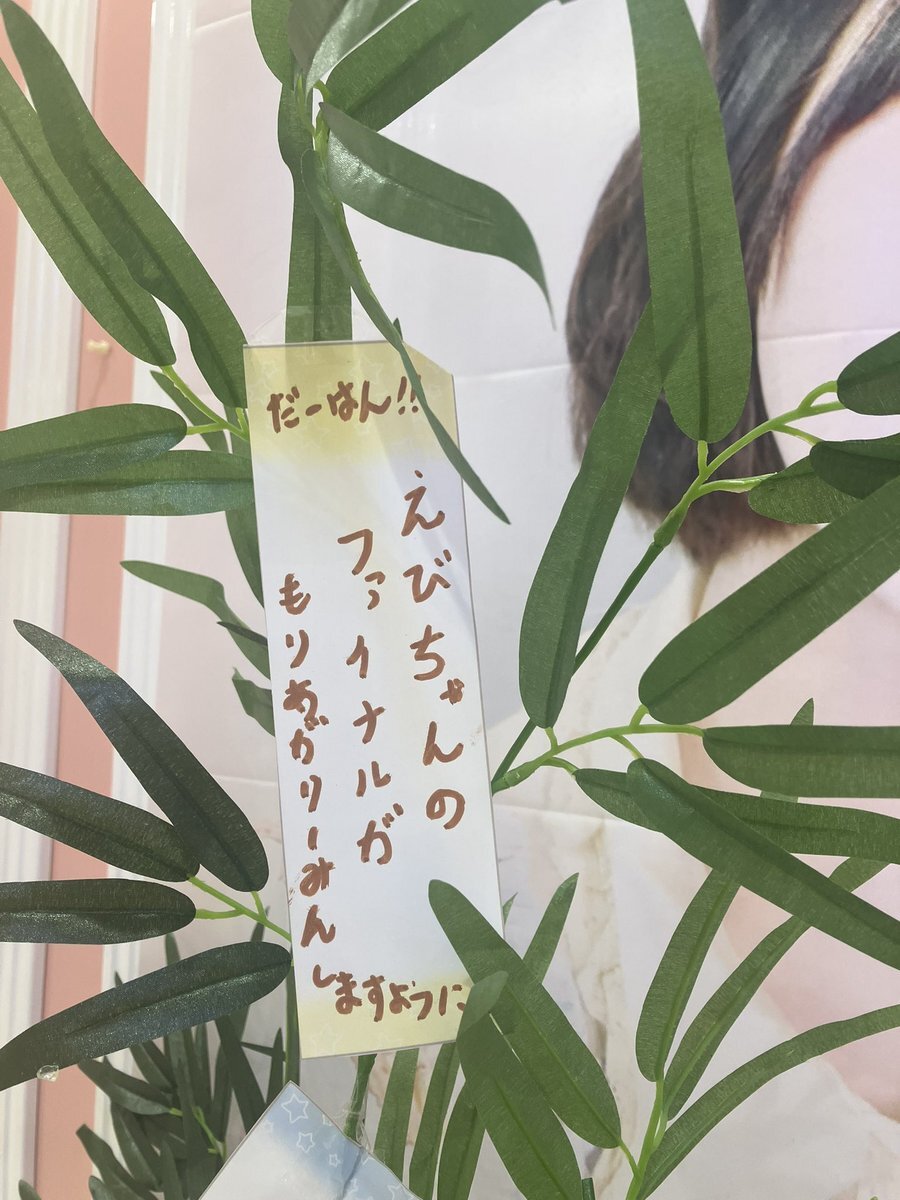 だーはん!!
えびちゃんの
ファイナルが
もりあがりーみん
しますように